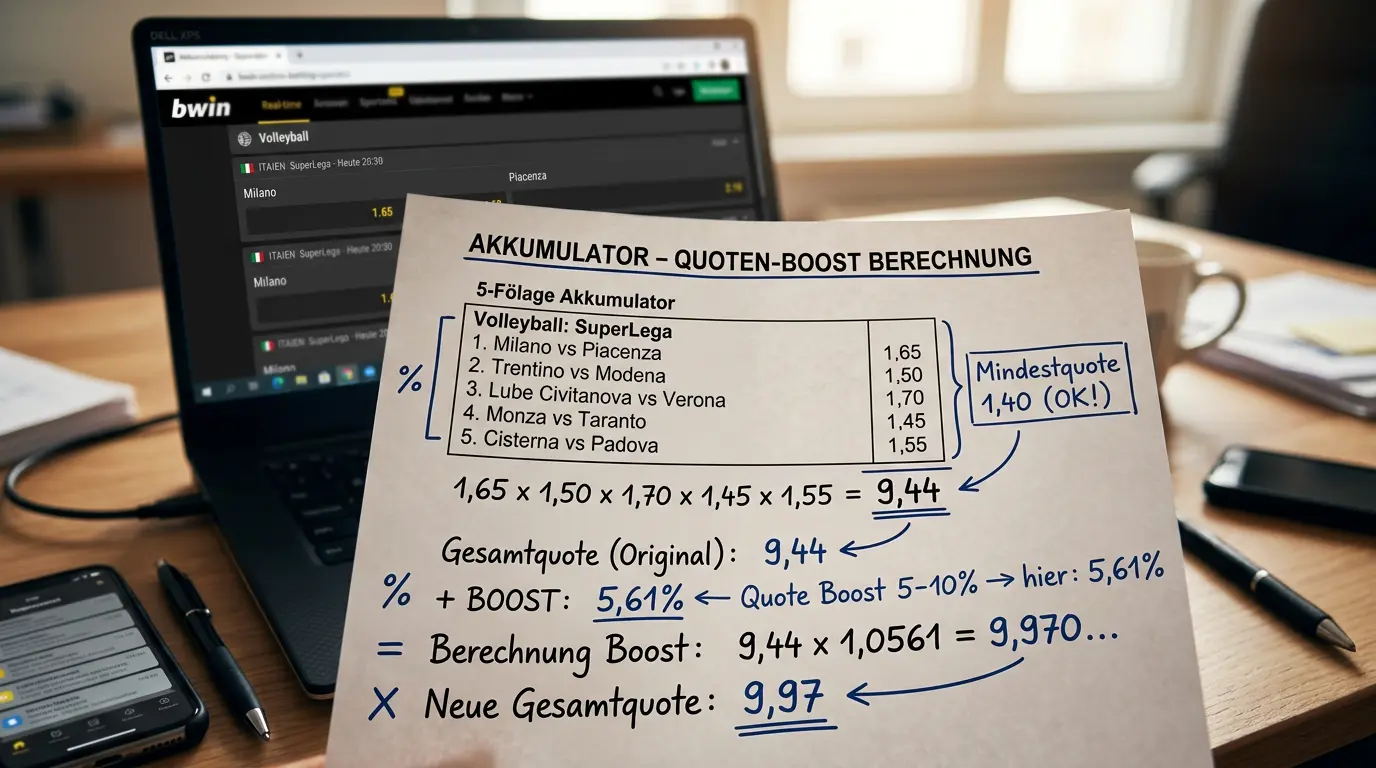 DELL XPS
bwin
Real-time
Volleyball
ITAIEN SuperLega · Heute 20:30
Milano
Piacenza
1.65
2.10
ITAIEN SuperLega · Heute 20:30
Milano
ITAIEN SuperLega · Heute 20
Milano
AKKUMULATOR – QUOTEN-BOOST BERECHNUNG
5-Fölage Akkumulator
Volleyball: SuperLega
1. Milano vs Piacenza 1,65
2. Trentino vs Modena 1,50
3. Lube Civitanova vs Verona 1,70
4. Monza vs Taranto 1,45
5. Cisterna vs Padova 1,55
%
Mindestquote
1,40 (OK!)
1,65 x 1,50 x 1,70 x 1,45 x 1,55 = 9,44
Gesamtquote (Original): 9,44
% + BOOST: 5,61% ← Quote Boost 5-10% → hier: 5,61%
= Berechnung Boost: 9,44 x 1,0561 = 9,970...
X Neue Gesamtquote: 9,97